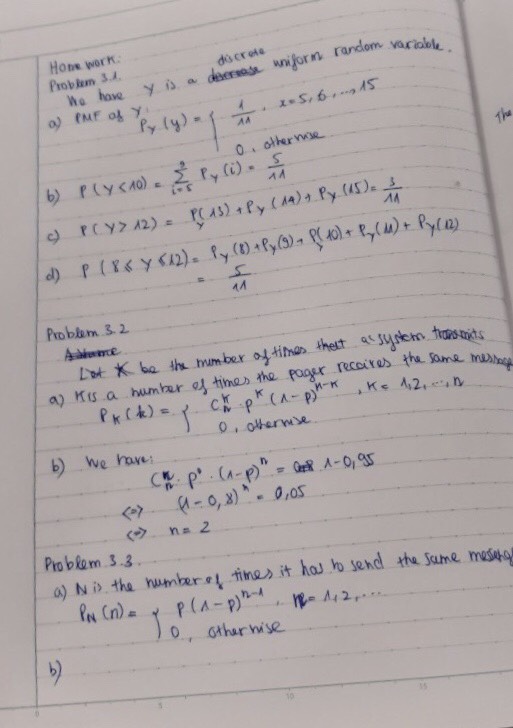 Homework:
Problem 3.1
discrete
We have Y is a uniform random variable.
a) PMF of Y.
P_Y (y) = { 1/11 , x = 5, 6 ..., 15
0, otherwise
b) P(Y<10) = Σ_{i=5}^{9} P_Y (i) = 5/11
c) P(Y>12) = P_Y(13) + P_Y (14) + P_Y (15) = 3/11
d) P(8≤Y≤12) = P_Y (8) + P_Y(9) + P_Y(10) + P_Y(11) + P_Y(12)
= 5/11
The
Problem 3.2
Let K be the number of times that a system transmits
a) K is a number of times the pager receives the same message
P_K (k) = { C_n^k p^k (1-p)^{n-k} , k = 1,2,..., n
0, otherwise
b) We have:
p^0 . (1-p)^n = 1-0,95
<=> (1-0,8)^n = 0,05
<=> n = 2
Problem 3.3
a) N is the number of times it has to send the same
P_N (n) = { p(1-p)^{n-1} , n = 1,2,...
0, otherwise
b)
0 5 10 15